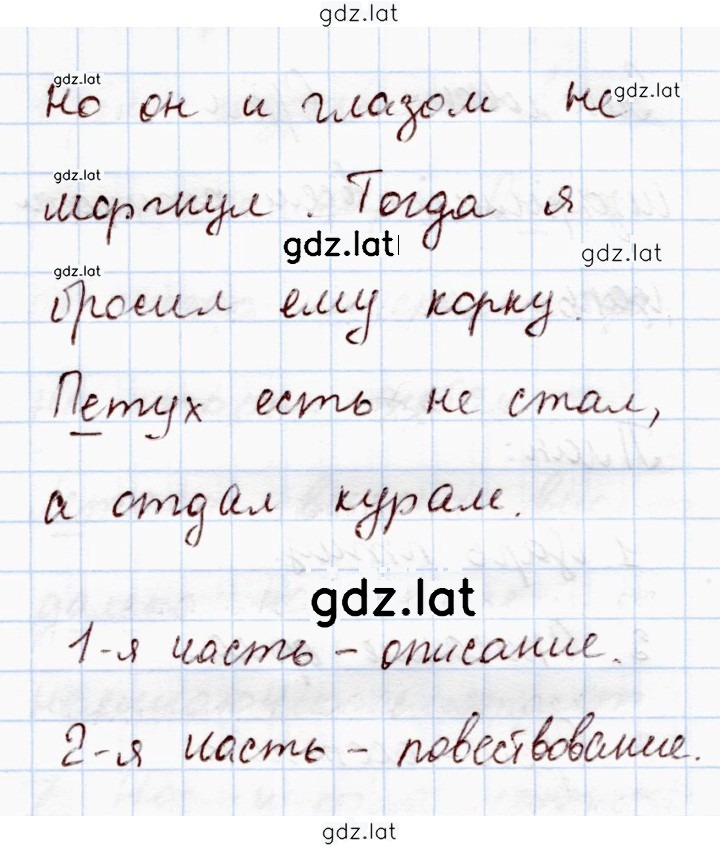 gdz.lat
gdz.lat
но он и глазом не
gdz.lat
gdz.lat
моргнул. Тогда я
gdz.lat
gdz.lat
gdz.lat
бросил ему корку.
Петух есть не стал,
а отдал курам.
gdz.lat
1-я часть – описание.
2-я часть – повествование.
gdz.lat